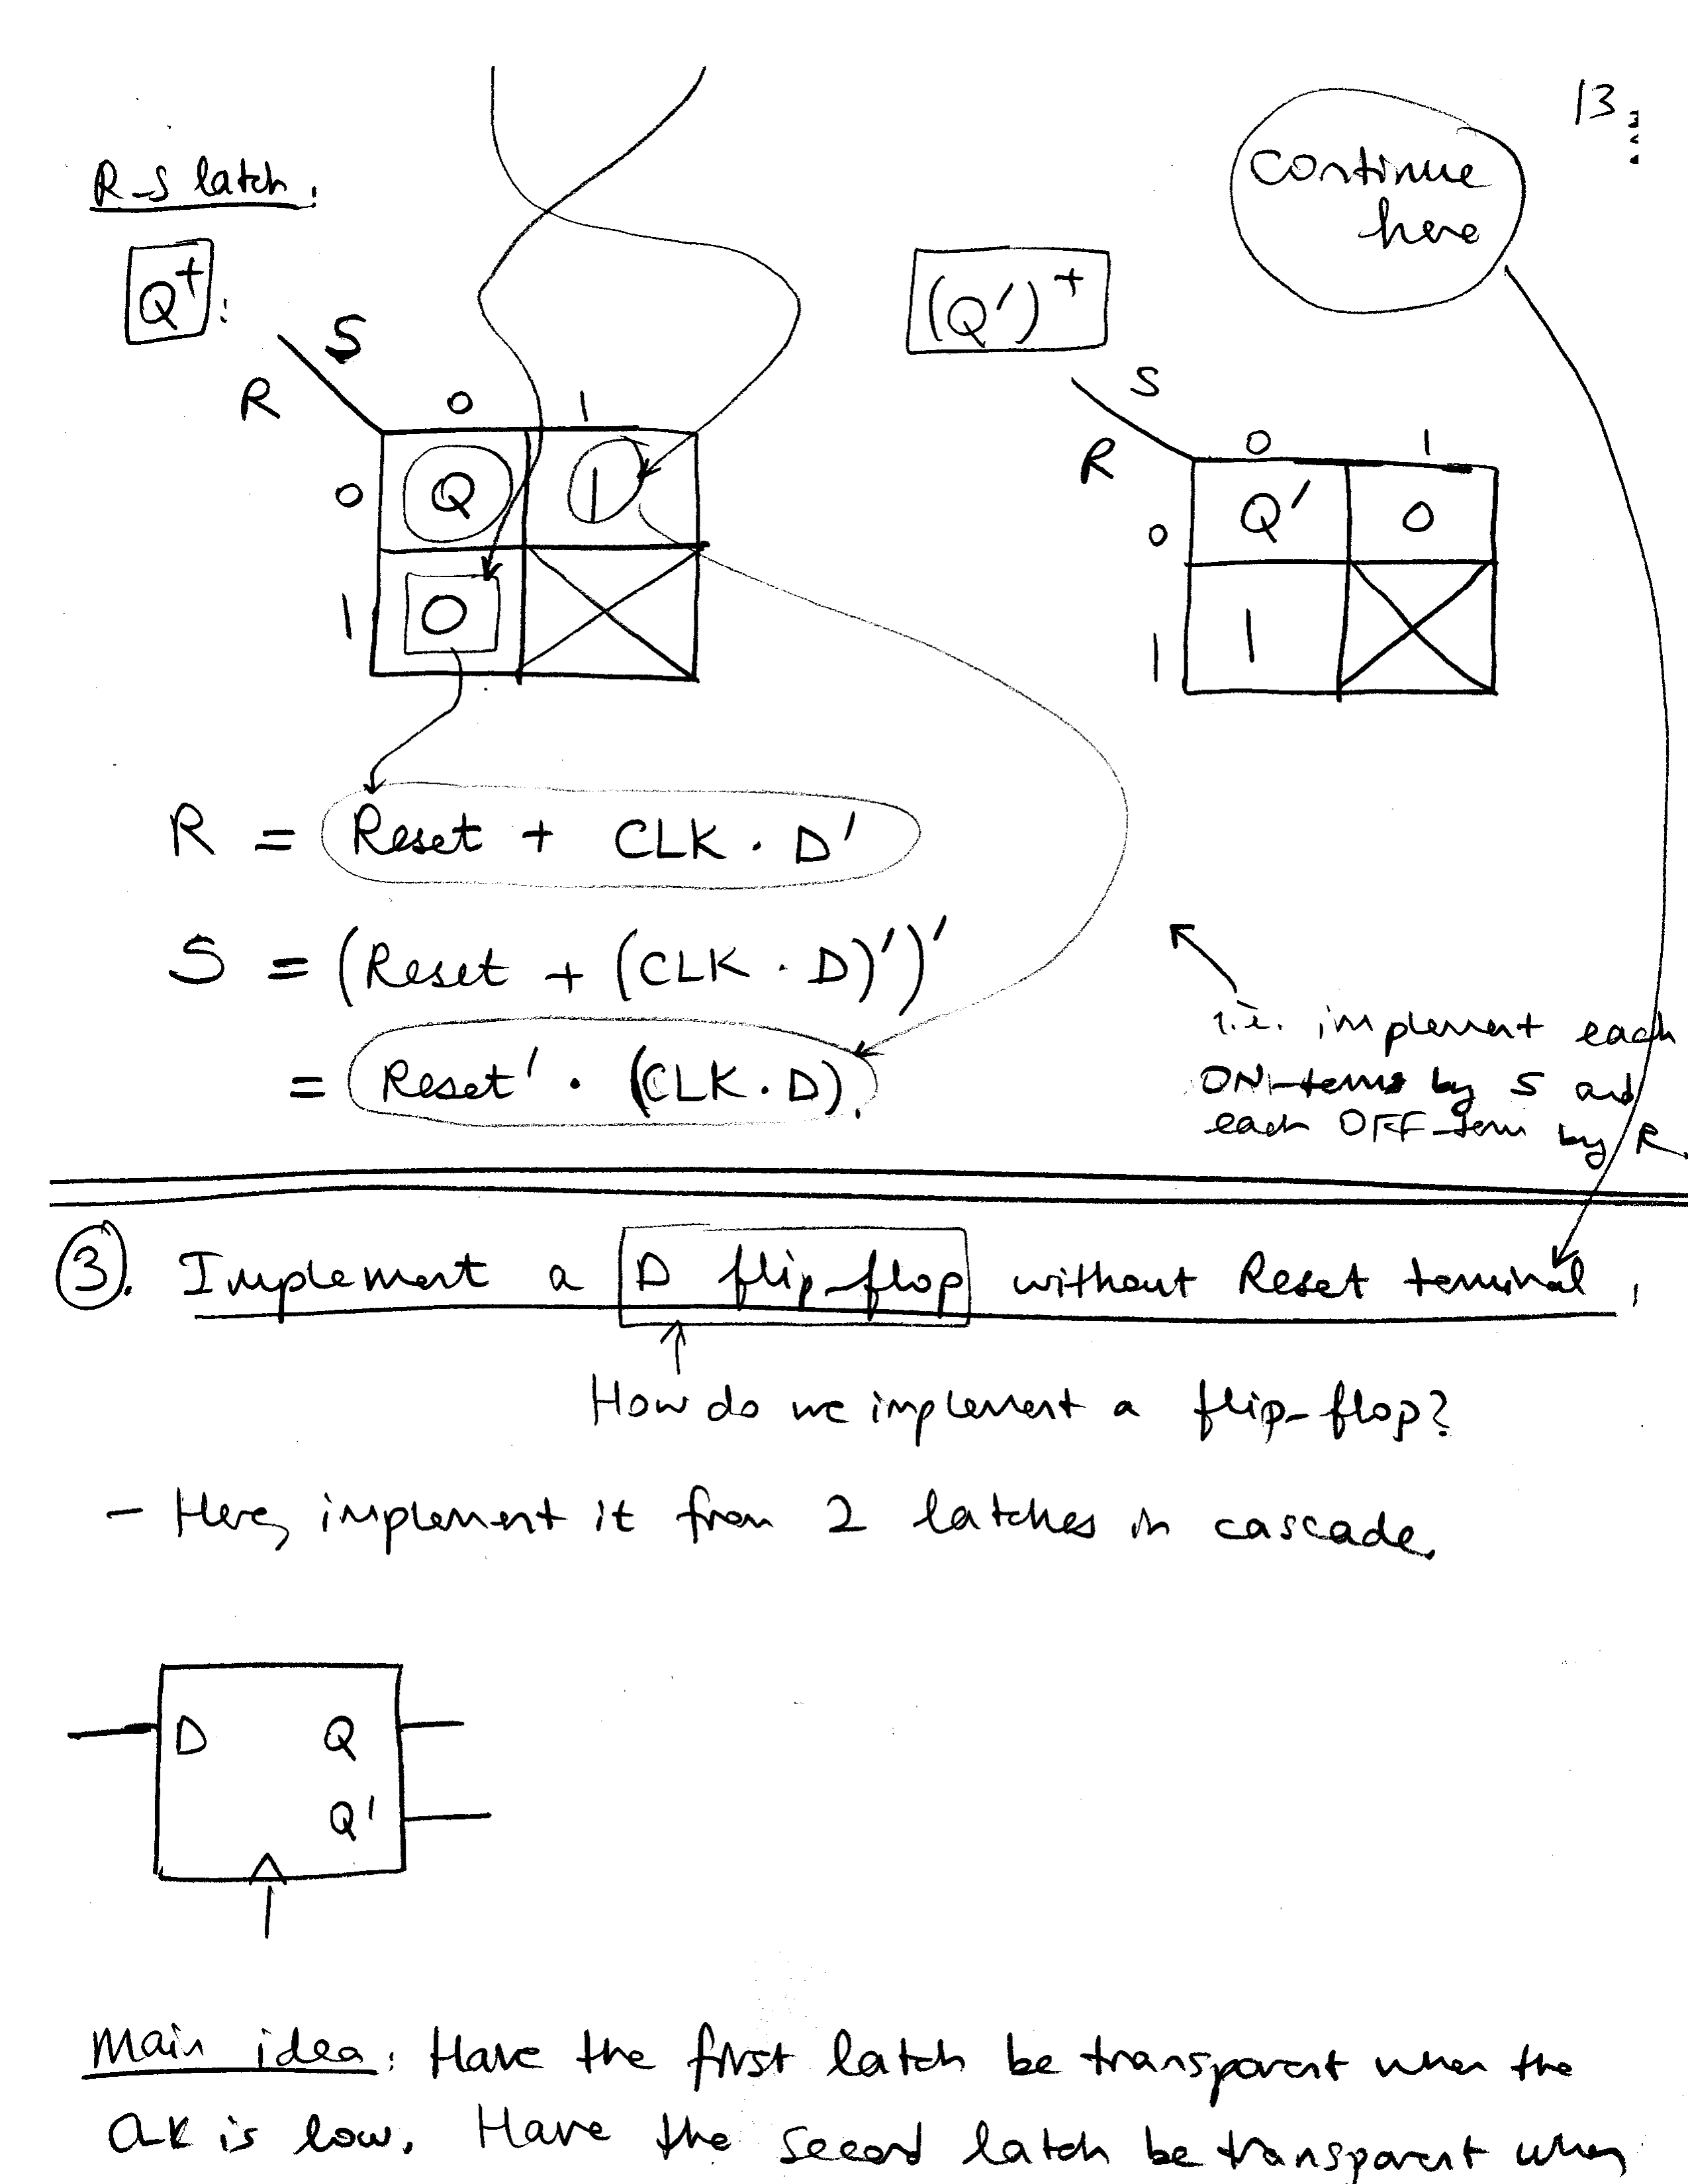 13
continue
here
R-S latch.
Q⁺:
S
R
0 1
0 Q 1
1 0
(Q')⁺
S
R
0 1
0 Q' 0
1 1
R = Reset + CLK · D'
S = (Reset + (CLK · D)')'
= Reset' · (CLK · D).
i.e. implement each
ON-terms by S and
each OFF-term by R.
3. Implement a D flip-flop without Reset terminal.
How do we implement a flip-flop?
- Here, implement it from 2 latches in cascade.
D Q
Q'
Main idea: Have the first latch be transparent when the
CLK is low. Have the second latch be transparent when